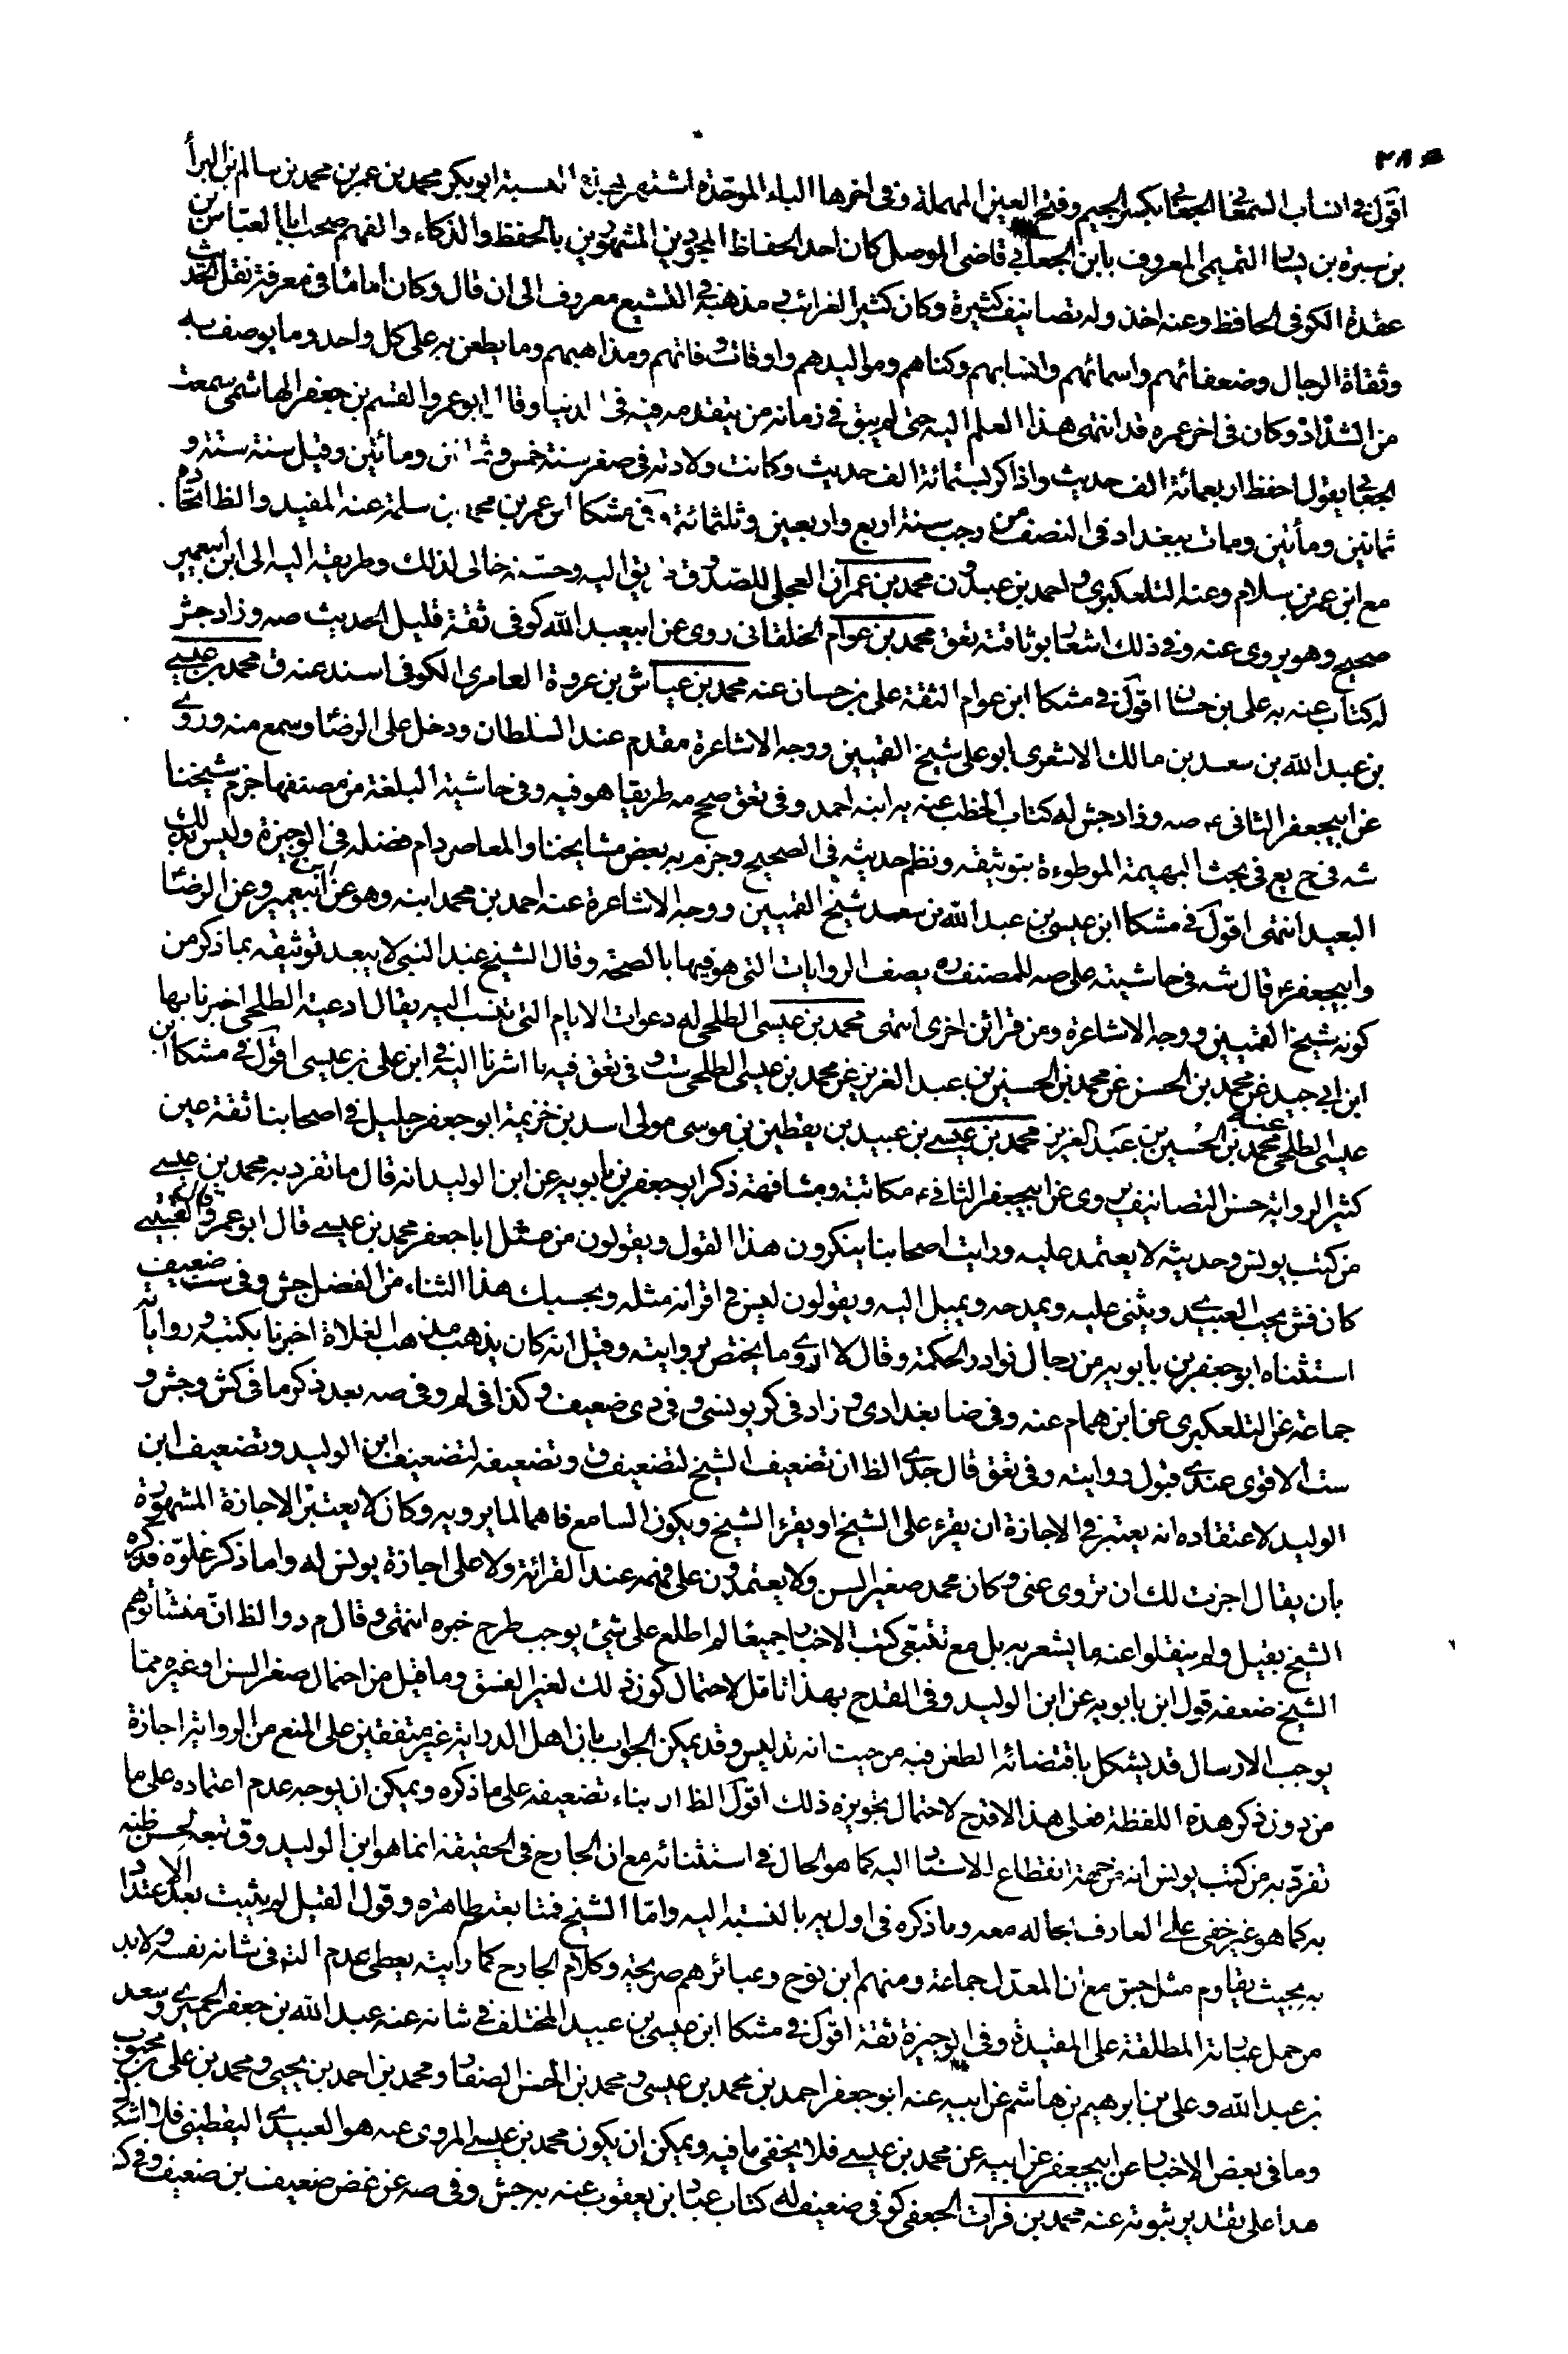 ٢٨٥
اقول في انساب السمعاني الجعابي بكسر الجيم وفتح العين المهملة وفي اخرها الباء الموحّدة اشتهر بهذه النسبة ابو بكر محمد بن عمر بن محمد بن سالم بن البراء
بن سبرة بن يسار التميمي المعروف بابن الجعابي قاضي الموصل كان احد الحفاظ المجودين المشهورين بالحفظ والذكاء والفهم صحب ابا العباس بن
عقدة الكوفي الحافظ وعنه اخذ وله تصانيف كثيرة وكان كثير الغرائب ومذهبه في التشيع معروف الى ان قال وكان اماما في معرفة نقل الحديث
وثقاة الرجال وضعفائهم واسمائهم وانسابهم وكناهم ومواليدهم واوقات وفاتهم ومذاهبهم وما يطعن به على كل واحد وما يوصف به
من السّداد وكان في اخر عمره قد انتهى هذا العلم اليه حتى لم يبق في زمانه من يتقدمه فيه في الدنيا وقال ابو عمرو القسم بن جعفر الهاشمي سمعت
الجعابي يقول احفظ اربعمائة الف حديث واذاكر بستمائة الف حديث وكانت ولادته في صفر سنة خمس وثمانين ومأتين وقيل سنة ستة و
ثمانين ومأتين ومات ببغداد في النصف من رجب سنة اربع واربعين وثلثمائة وفي مشكا ابن عمر بن محمد بن سلمة عنه المفيد والظ اتحاده
مع ابن عمر بن سلام وعنه التلعكبري واحمد بن عبدون محمد بن عمران العجلي للصدوق طريق اليه وحسّنه خالي لذلك وطريقه اليه الى ابن ابيعمير
صحيح وهو يروي عنه وفي ذلك اشعار بوثاقته تعق محمد بن عوام الخلقاني روى عن ابيعبد الله كوفي ثقة قليل الحديث صه وزاد جش
له كتاب عنه به علي بن حسان اقول في مشكا ابن عوام الثقة علي بن حسان عنه محمد بن عياش بن عروة العامري الكوفي اسند عنه ق محمد بن عيسى
بن عبد الله بن سعد بن مالك الاشعري ابو علي شيخ القميين ووجه الاشاعرة مقدم عند السلطان ودخل على الرضا وسمع منه وروى
عن ابيجعفر الثاني ء صه وزاد جش له كتاب الخطب عنه به ابنه احمد وفي تعق صحح مه طريقا هو فيه وفي حاشية البلغة من مصنفها جزم شيخنا
شه في ح يع في بحث البهيمة الموطوءة بتوثيقه ونظم حديثه في الصحيح وجزم به بعض مشايخنا والمعاصر دام فضله في الوجيزة وليس بذلك
البعيد انتهى اقول في مشكا ابن عيسى بن عبد الله بن سعد شيخ القميين ووجه الاشاعرة عنه احمد بن محمد ابنه وهو عن ابن ابيعمير وعن الرضا
وابيجعفر ء قال شه في حاشيته على صه للمصنف ره يصف الروايات التي هو فيها بالصحة وقال الشيخ عبد النبي لا يبعد توثيقه بما ذكر من
كونه شيخ القميين ووجه الاشاعرة ومن قرائن اخرى انتهى محمد بن عيسى الطلحي له دعوات الايام التي تنسب اليه يقال ادعية الطلحي اخبرنا بها
ابن ابي جيد عن محمد بن الحسن عن محمد بن الحسين بن عبد العزيز عن محمد بن عيسى الطلحي ست وفي تعق فيه ما اشرنا اليه في ابن علي بن عيسى اقول في مشكا ابن
عيسى الطلحي عنه محمد بن الحسين بن عبد العزيز محمد بن عيسى بن عبيد بن يقطين بن موسى مولى اسد بن خزيمة ابو جعفر جليل في اصحابنا ثقة عين
كثير الرواية حسن التصانيف روى عن ابيجعفر الثاني ء مكاتبة ومشافهة ذكر ابو جعفر بن بابويه عن ابن الوليد انه قال ما تفرد به محمد بن عيسى
من كتب يونس وحديثه لا يعتمد عليه ورايت اصحابنا ينكرون هذا القول ويقولون من مثل ابا جعفر محمد بن عيسى قال ابو عمرو قال القتيبي
كان فش يحب العبيدي ويثني عليه ويمدحه ويميل اليه ويقولون ليس في اقرانه مثله وبحسبك هذا الثناء من الفضل جش وفي ست ضعيف
استثناه ابو جعفر بن بابويه من رجال نوادر الحكمة وقال لا اروي ما يختص بروايته وقيل انه كان يذهب مذهب الغلاة اخبرنا بكتبه ورواياته
جماعة عن التلعكبري عن ابن همام عنه وفي ضا بغدادي وزاد في كر يونسي وفي دي ضعيف وكذا في لم وفي صه بعد ذكر ما في كش وجش و
ست الاقوى عندي قبول روايته وفي تعق قال جدي الظ ان تضعيف الشيخ لتضعيف ق وتضعيفه لتضعيف ابن الوليد وتضعيف ابن
الوليد لاعتقاده انه يعتبر في الاجازة ان يقرء على الشيخ او يقرء الشيخ ويكون السامع فاهما لما يرويه وكان لا يعتبر الاجازة المشهورة
بان يقال اجزت لك ان تروي عني وكان محمد صغير السن ولا يعتمدون على فهمه عند القرائة ولا على اجازة يونس له واما ذكر غلوّه فذكره
الشيخ بقيل ولم ينقلوا عنه ما يشعر به بل مع تتبعي كتب الاخبار جميعا لم اطلع على شيئ يوجب طرح خبره انتهى وقال م د والظ ان منشأ توهم
الشيخ ضعفه قول ابن بابويه عن ابن الوليد وفي القدح بهذا تامّل لاحتمال كون ذلك لغير الفسق وما قيل من احتمال صغر السن او غيره ممّا
يوجب الارسال قد يشكل باقتضائه الطعن فيه من حيث انه تدليس وقد يمكن الجواب بان اهل الدراية غير متفقين على المنع من الرواية اجازة
من دون ذكر هذه اللفظة فعلى هذا لا قدح لاحتمال تجويزه ذلك اقول الظ ان بناء تضعيفه على ما ذكره ويمكن ان يوجه عدم اعتماده على ما
تفرّد به من كتب يونس انه من جهة انقطاع الاسناد اليه كما هو الحال في استثنائه مع ان الجارح في الحقيقة انما هو ابن الوليد وق تبعه لحسن ظنه
به كما هو غير خفي على العارف بحاله معه وما ذكره في اول يه بالنسبة اليه وامّا الشيخ فمتابعته ظاهرة وقول القيل لم يثبت بعد الاعتداد
به بحيث يقاوم مثل جش مع ان المعدّل جماعة ومنهم ابن نوح وعبائرهم صريحة وكلام الجارح كما رايته يعطي عدم التهم في شانه نفسه ولابد
من حمل عباراته المطلقة على المقيدة وفي الوجيزة ثقة اقول في مشكا ابن عيسى بن عبيد المختلف في شانه عنه عبد الله بن جعفر الحميري وسعد
بن عبد الله وعلي بن ابرهيم بن هاشم عن ابيه عنه ابو جعفر احمد بن محمد بن عيسى ومحمد بن الحسن الصفار ومحمد بن احمد بن يحيى ومحمد بن علي بن محبوب
وما في بعض الاخبار عن ابيجعفر عن ابيه عن محمد بن عيسى فلا يخفى ما فيه ويمكن ان يكون محمد بن عيسى المروي عنه هو العبيدي اليقطيني فلا اشكال
هذا على تقدير ثبوته عنه محمد بن فرات الجعفي كوفي ضعيف له كتاب عباد بن يعقوب عنه به جش وفي صه عن غض ضعيف بن ضعيف وفي كش